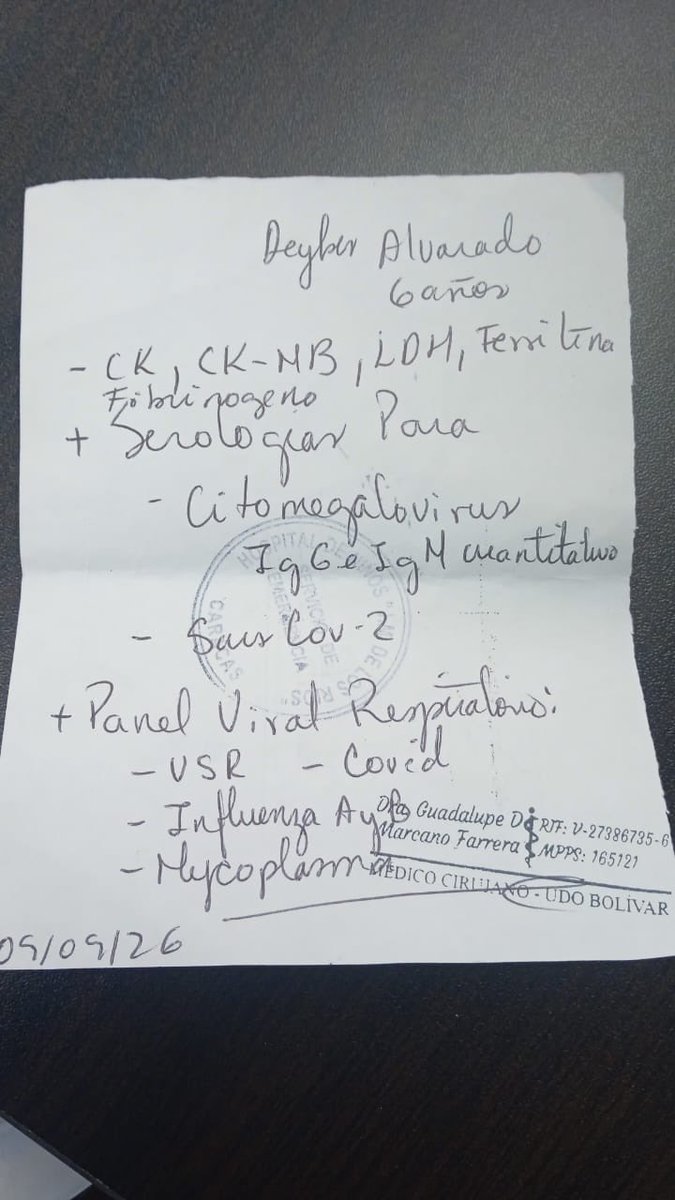 Deyber Alvarado
6 años
- CK, CK-MB, LDH, Ferritina
Fibrinogeno
+ Serologias Para
- Citomegalovirus
IgG e IgM cuantitativo
- Sars Cov-2
+ Panel Viral Respiratorio:
- VSR - Covid
- Influenza A y B
- Mycoplasma
Dra Guadalupe D
Marcano Farrera
RIF: V-27386735-6
MPPS: 165121
MÉDICO CIRUJANO - UDO BOLÍVAR
HOSPITAL DE NIÑOS "J.M. DE LOS RIOS"
SERVICIO DE
EMERGENCIA
CARACAS
09/09/26